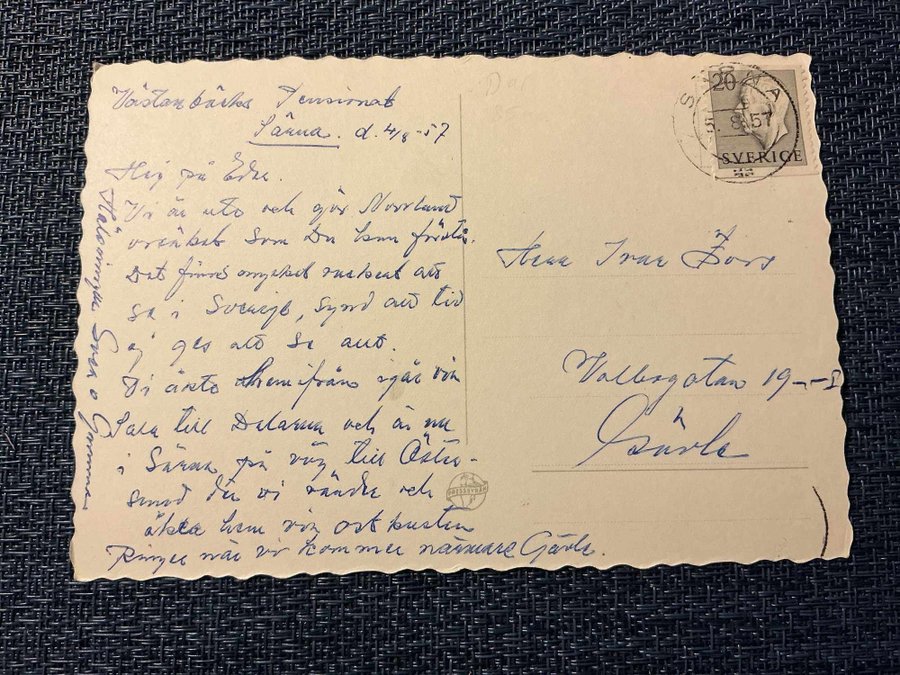 Västanbäcks Pensionat
Särna. d. 4/8-57
Hej på Eder.
Vi är ute och gör Norrland
osäkert som Du kan förstå.
Det finns mycket vackert att
se i Sverige, synd att tid
ej ges att se allt.
Vi åkte hemifrån igår via
Sala till Dalarna och är nu
i Särna på väg till Öster-
sund där vi vänder och
åker hem via ostkusten
Ringer när vi kommer närmare Gävle.
Hälsningar Sven o
20
SÄRNA
5. 8. 57
SVERIGE
Herr Ivar
Valbogatan 19
Gävle
PRESSBYRÅN